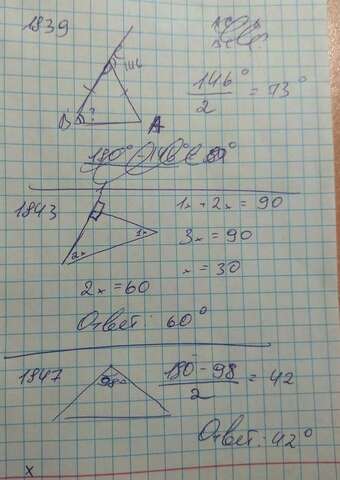 1839
146
B ? A
146° / 2 = 73°
1843
1x 2x
1x + 2x = 90
3x = 90
x = 30
2x = 60
Ответ: 60°
1847
98°
180 - 98 / 2 = 42
Ответ: 42°
x